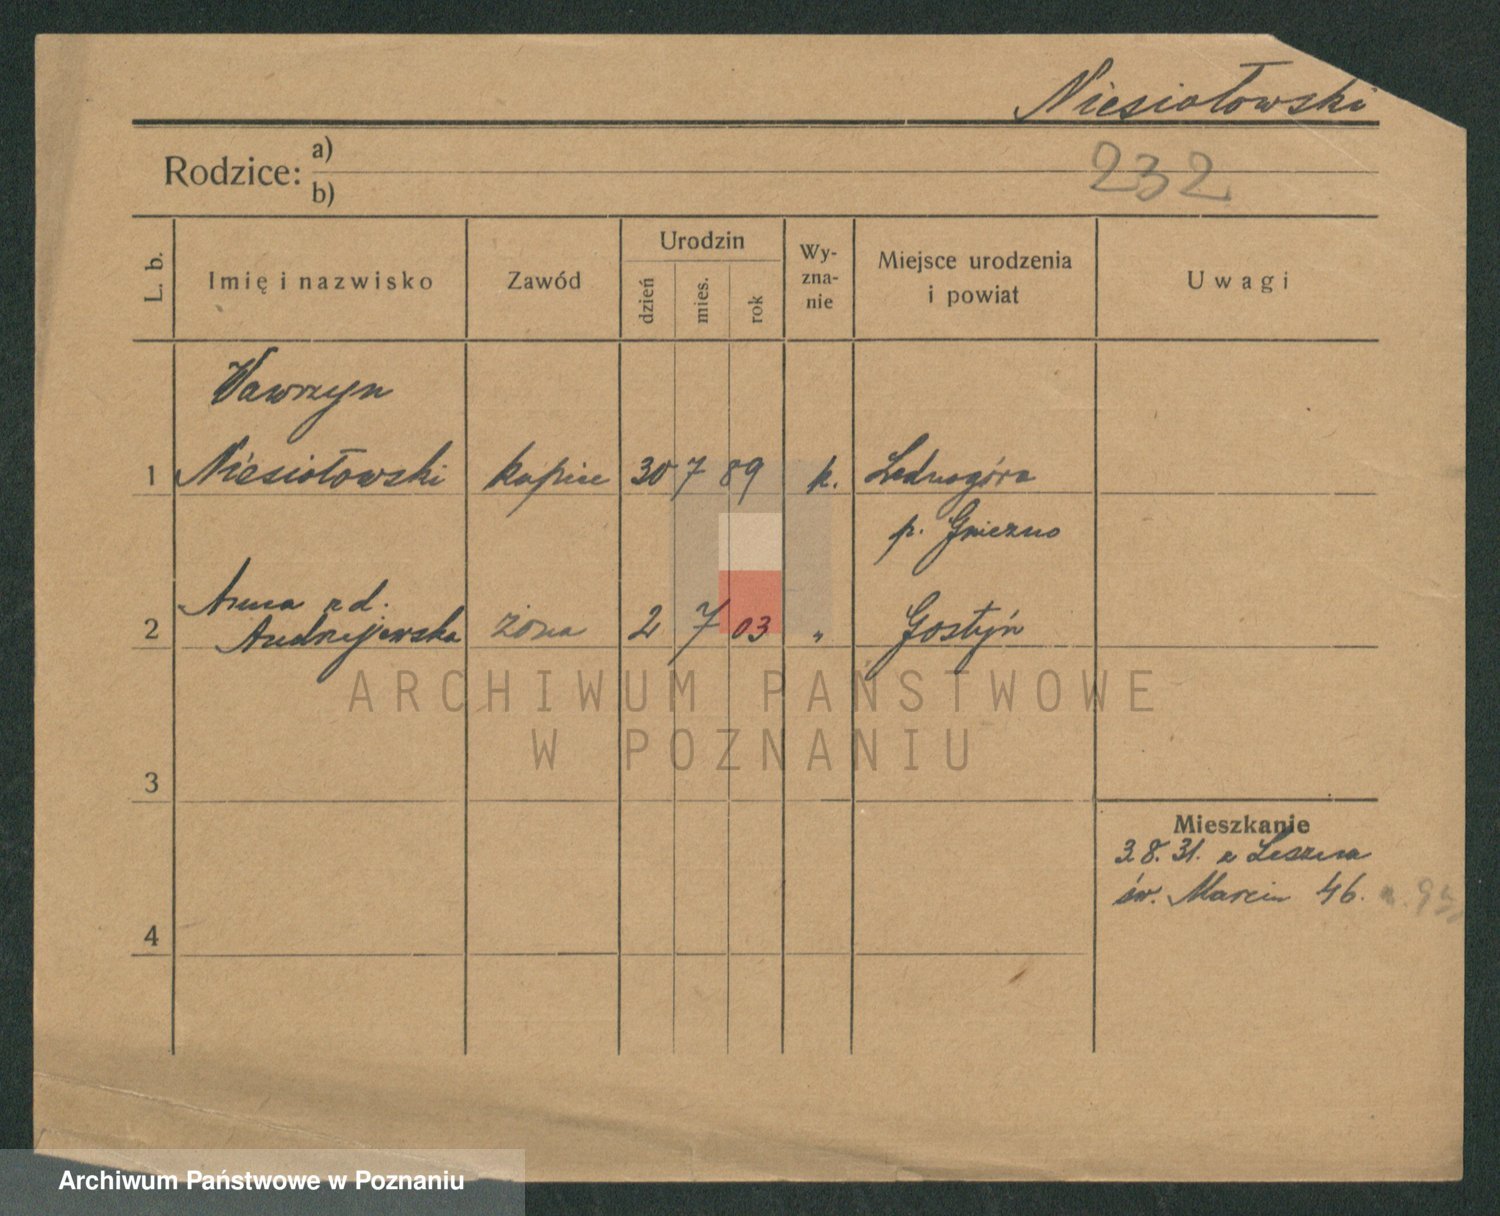 Niesiołowski
Rodzice: a)
b)
232
L. b.
Imię i nazwisko
Zawód
Urodzin
dzień
mies.
rok
Wy-
zna-
nie
Miejsce urodzenia
i powiat
Uwagi
Wawrzyn
1 Niesiołowski kupiec 30 7 89 k. Lednogóra
p. Gniezno
Anna zd.
2 Andrzejewska żona 2 7 03 „ Gostyń
ARCHIWUM PAŃSTWOWE
W POZNANIU
3
Mieszkanie
3.8.31. z Leszna
św. Marcin 46.
4
Archiwum Państwowe w Poznaniu